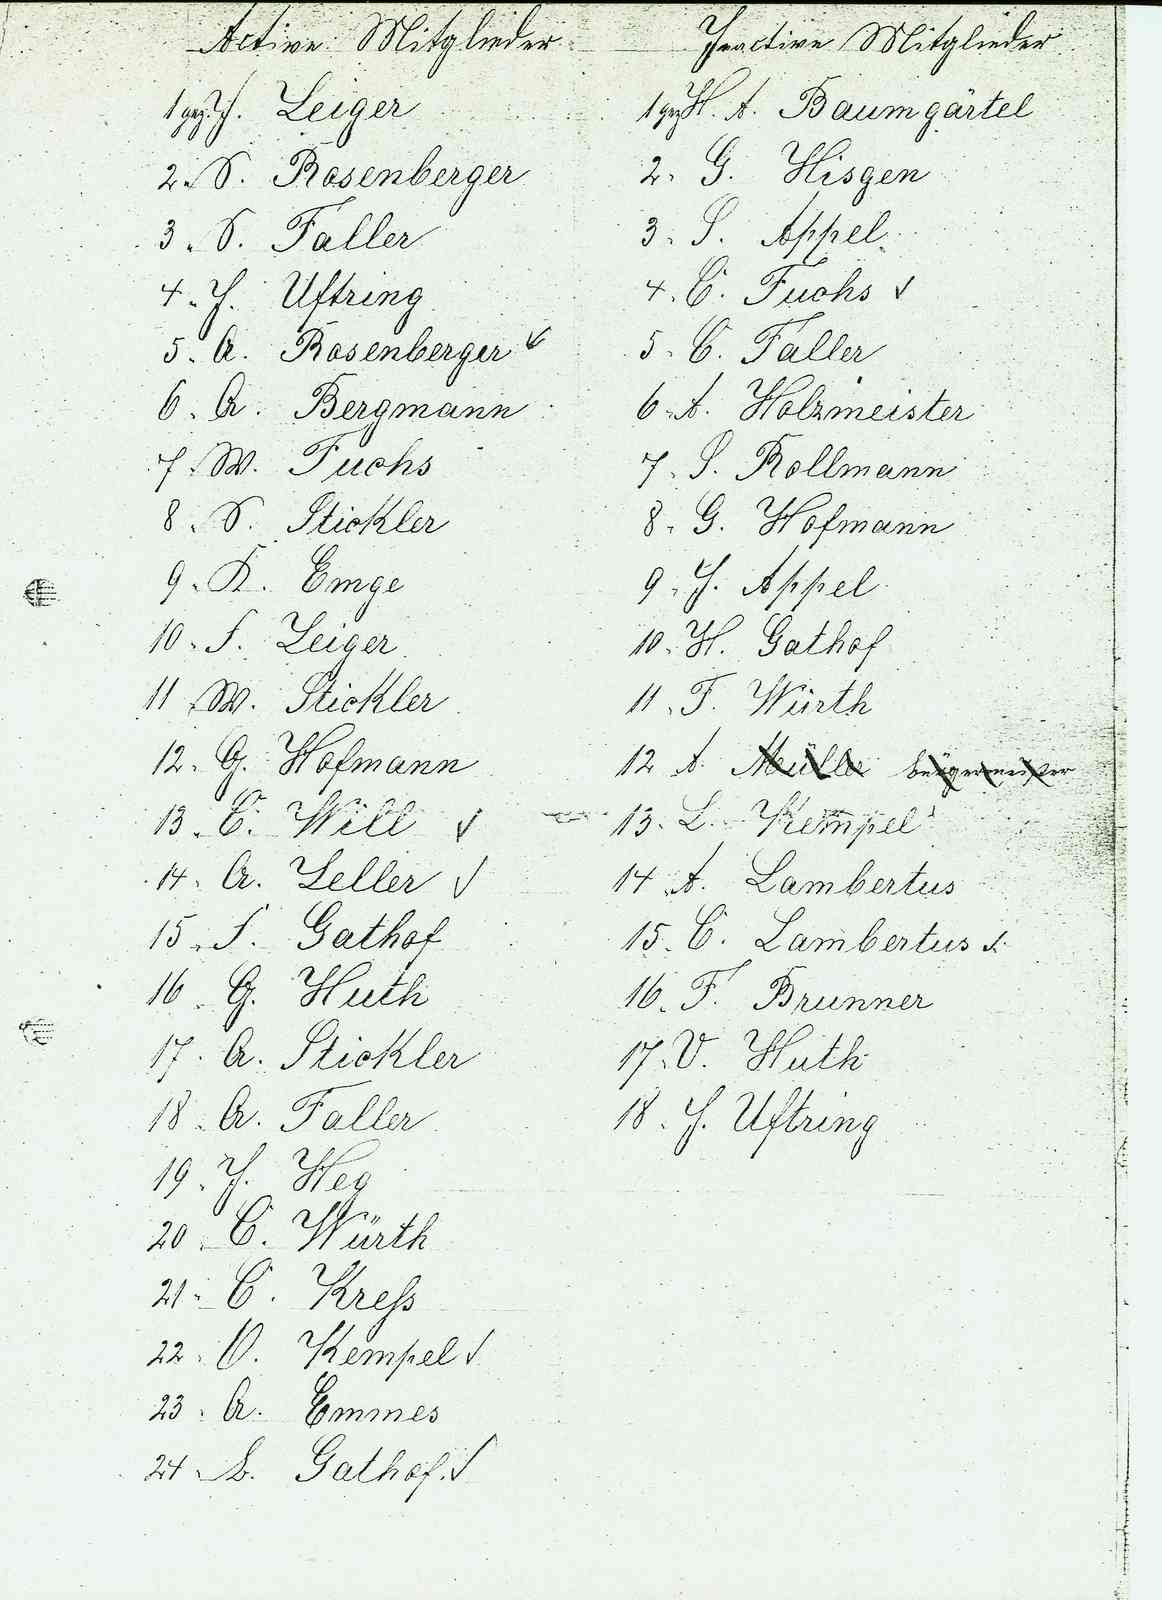 Active Mitglieder
1 gez. J. Geiger
2. N. Rosenberger
3. N. Faller
4. J. Uftring
5. A. Rosenberger ✓
6. A. Bergmann
7. W. Fuchs
8. N. Stickler
9. K. Emge
10. J. Geiger
11. W. Stickler
12. G. Hofmann
13. C. Will ✓
14. A. Geller ✓
15. J. Gathof
16. G. Huth
17. A. Stickler
18. A. Faller
19. J. Heg
20. C. Würth
21. C. Kreß
22. O. Kempel ✓
23. A. Emmes
24. L. Gathof ✓
Inactive Mitglieder
1 gez H. A. Baumgärtel
2. G. Hisgen
3. S. Appel
4. C. Fuchs ✓
5. C. Faller
6. A. Holzmeister
7. S. Rollmann
8. G. Hofmann
9. J. Appel
10. H. Gathof
11. F. Würth
12 A. Müller bürgermeister
13. L. Kempel
14 A. Lambertus
15. C. Lambertus ✓
16. F. Brunner
17. V. Huth
18. J. Uftring